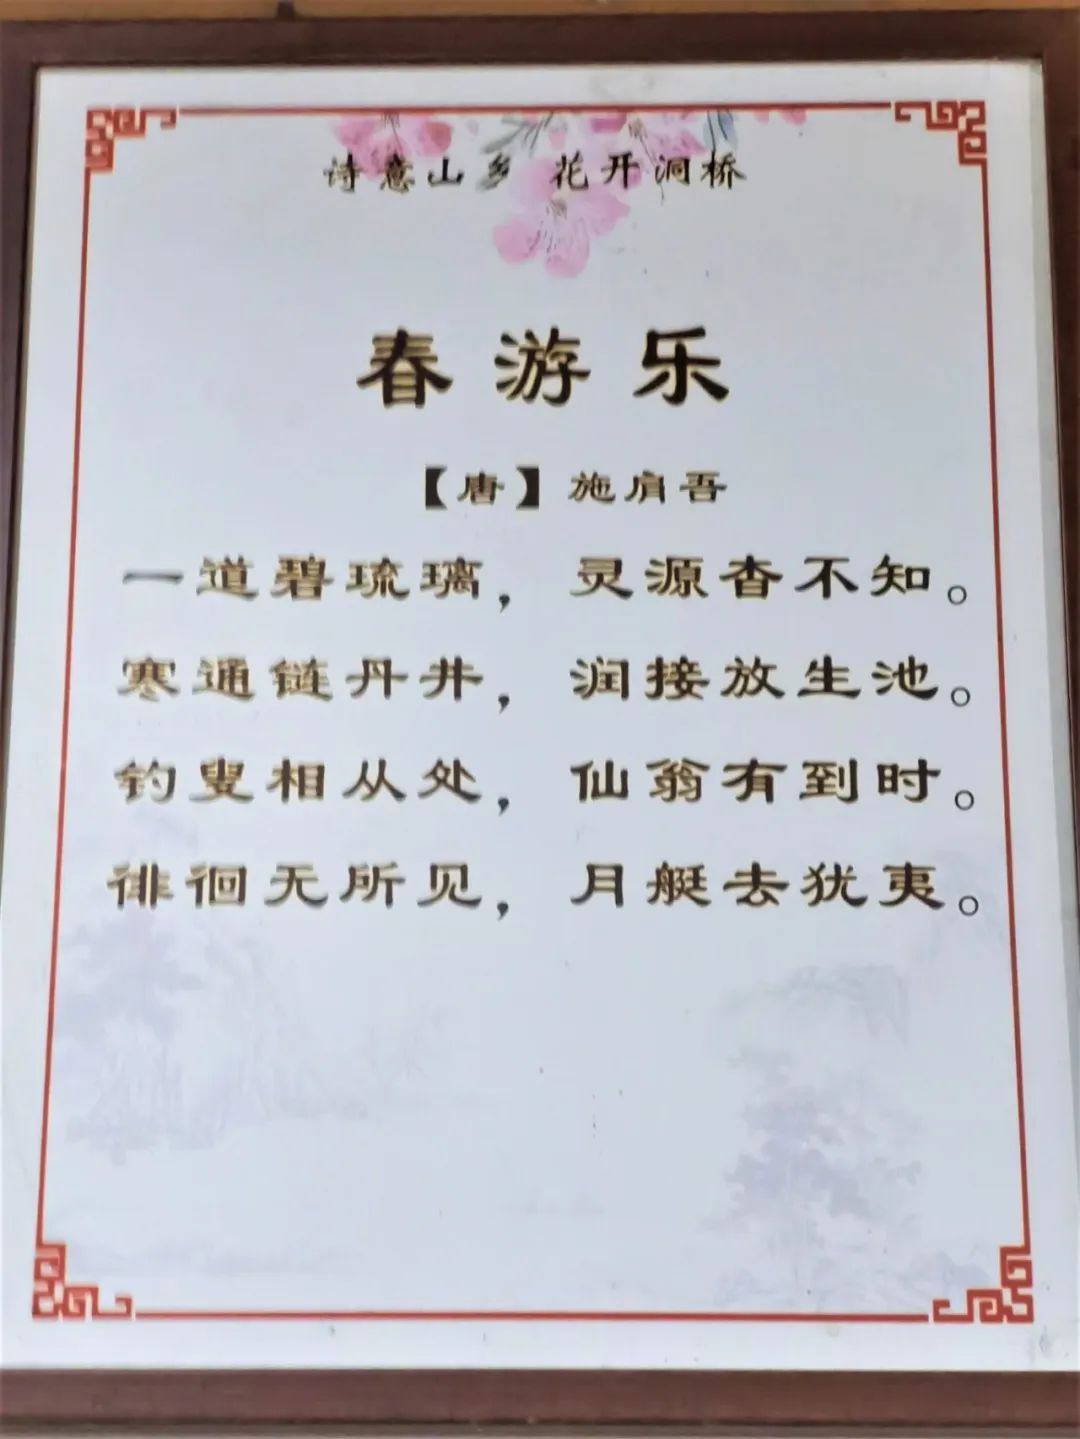 诗意山乡 花开洞桥
春游乐
【唐】施肩吾
一道碧琉璃，灵源杳不知。
寒通链丹井，润接放生池。
钓叟相从处，仙翁有到时。
徘徊无所见，月艇去犹夷。